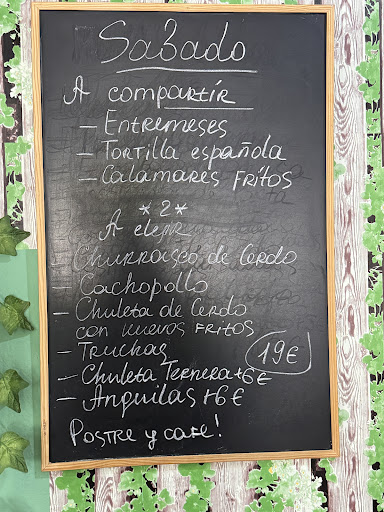 Sabado
A compartir
- Entremeses
- Tortilla española
- Calamares Fritos
*2*
A elejir
- Churrasco de Cerdo
- Cachopollo
- Chuleta de Cerdo
con huevos Fritos
- Truchas
19€
- Chuleta Ternera +6€
- Anguilas +6€
Postre y cafe!